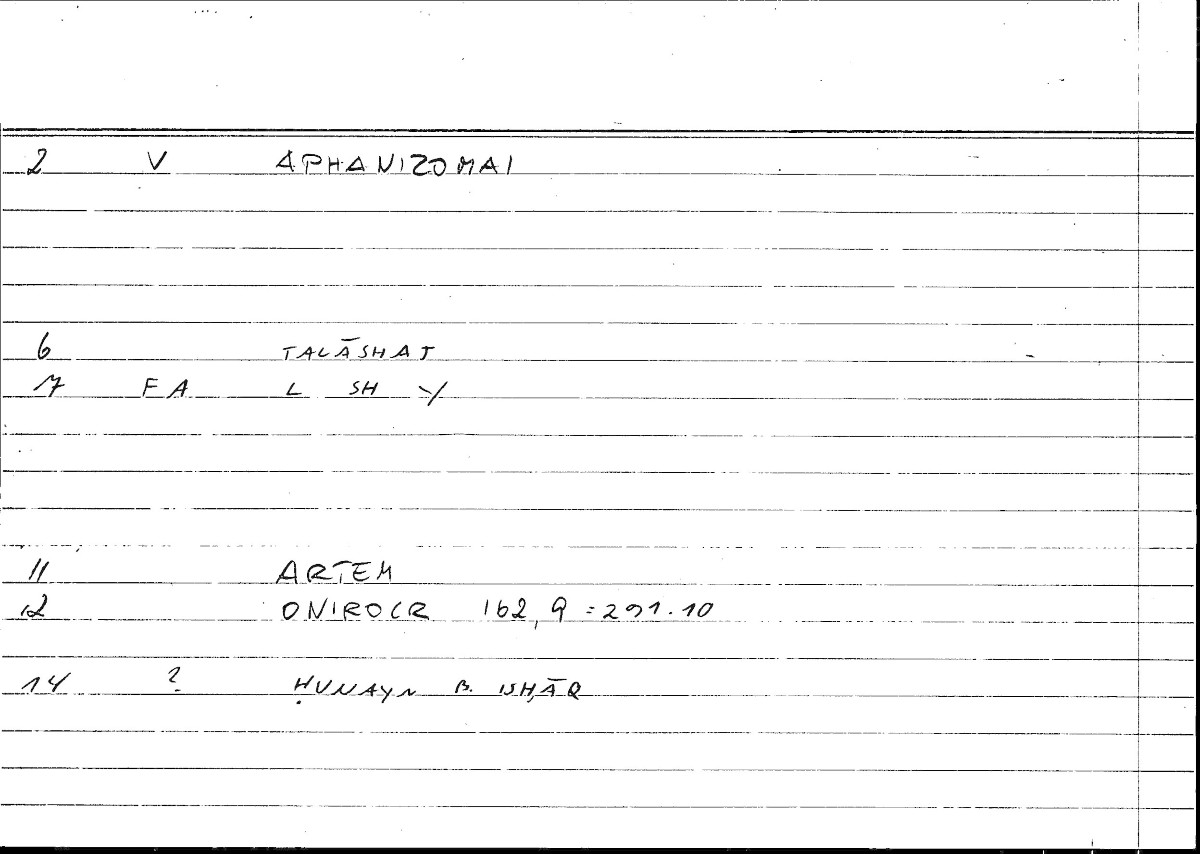 2 V APHANIZOMAI
6 TALĀSHAT
7 FA L SH Y
11 ARTEM
12 ONIROCR 162,9=291.10
14 ? ḤUNAYN B. ISḤĀQ